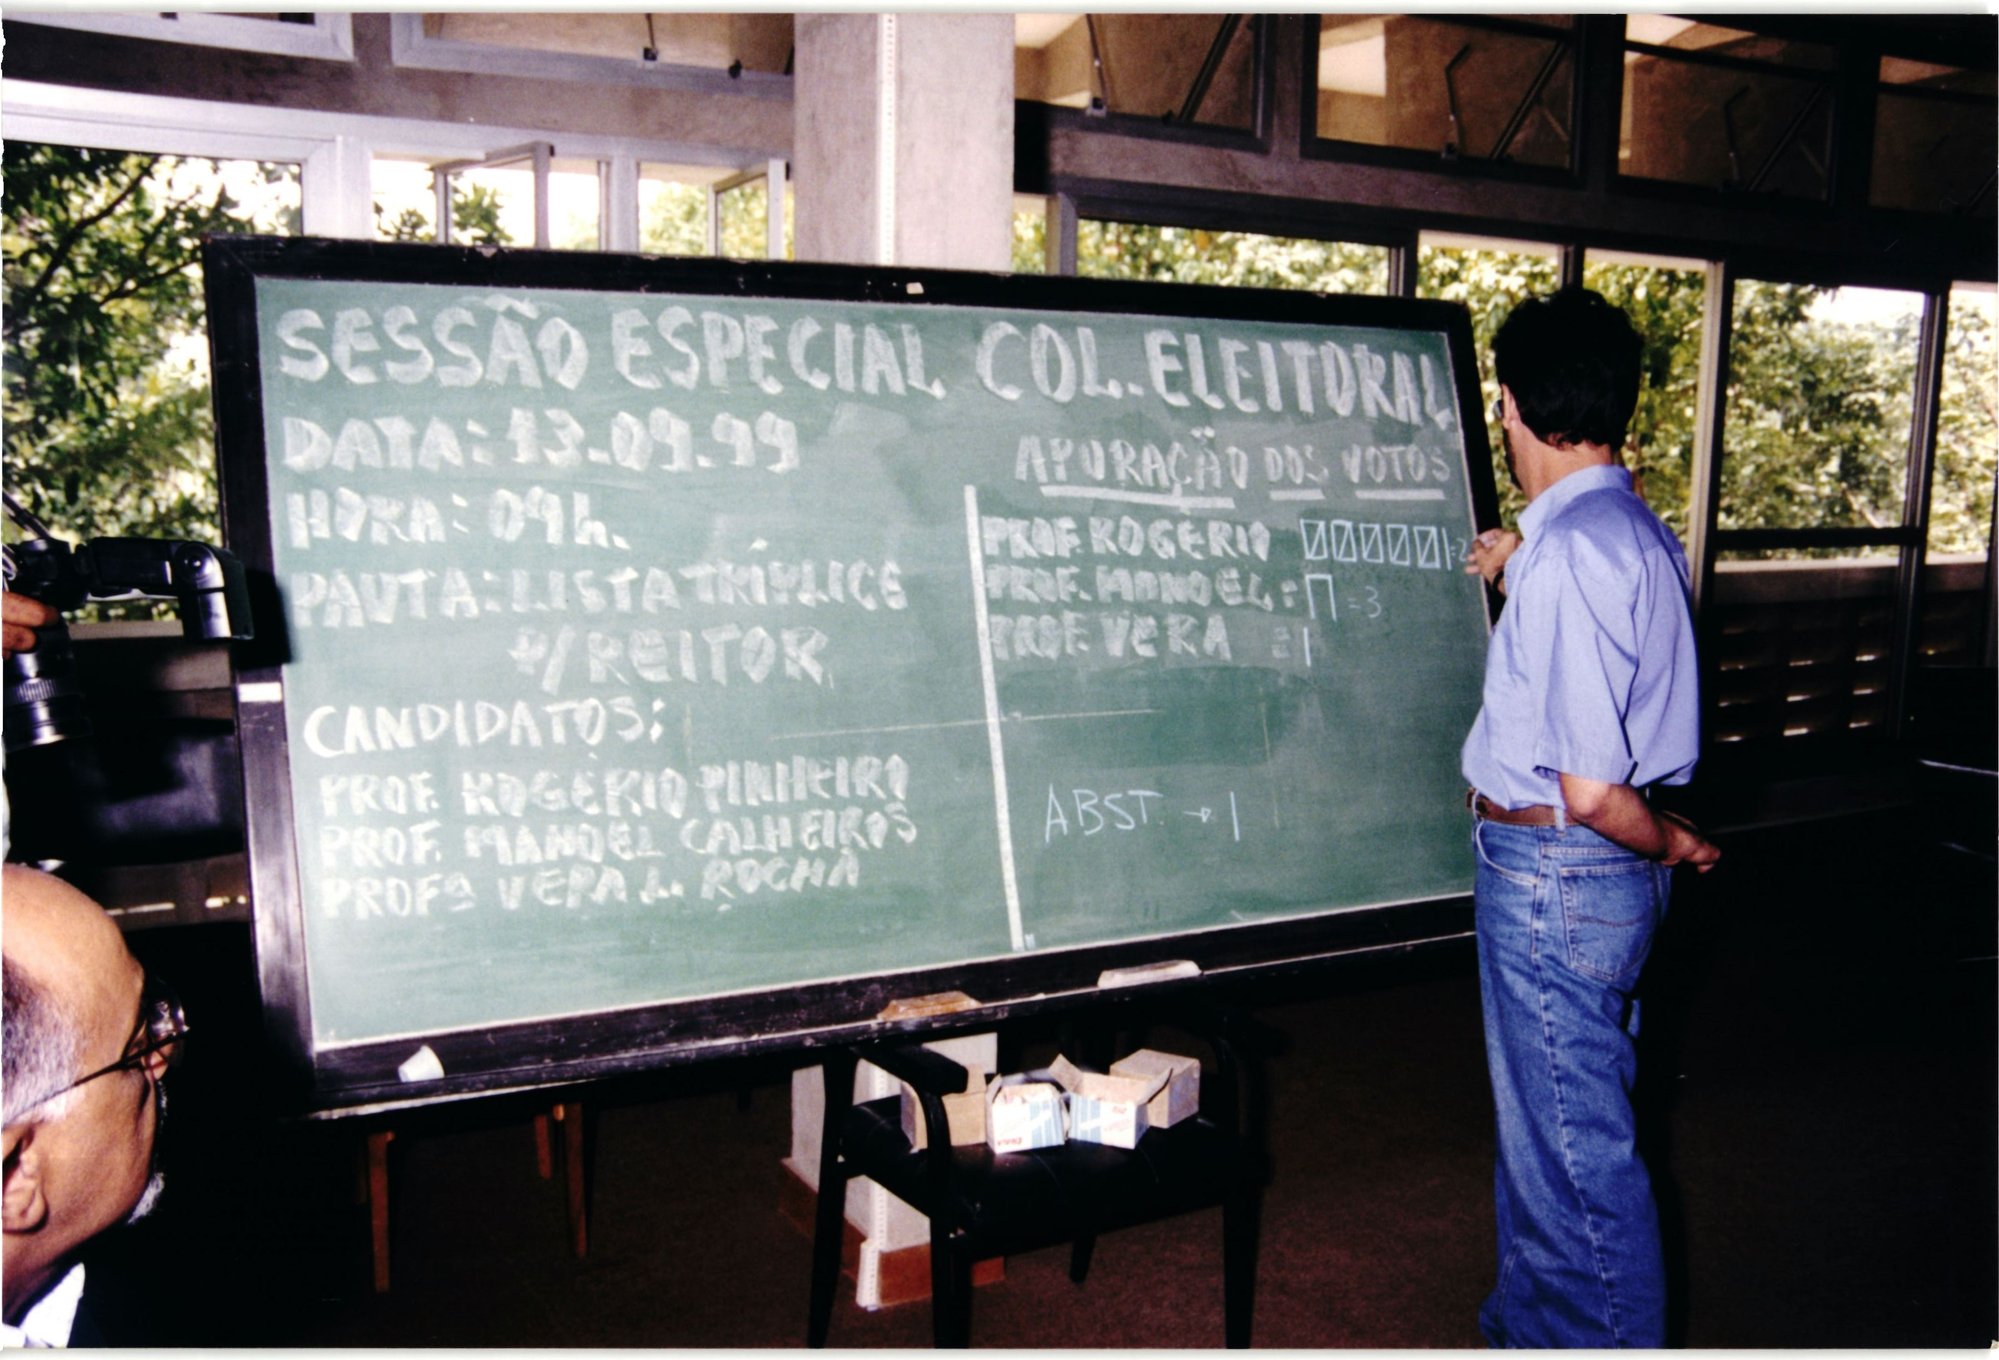 SESSÃO ESPECIAL COL. ELEITORAL
DATA: 13.09.99
HORA: 09h.
PAUTA: LISTA TRÍPLICE
P/ REITOR
CANDIDATOS:
PROF. ROGÉRIO PINHEIRO
PROF. MANOEL CALHEIROS
PROFª VERA L. ROCHA
APURAÇÃO DOS VOTOS
PROF. ROGÉRIO
PROF. MANOEL: = 3
PROF. VERA = 1
ABST. → 1